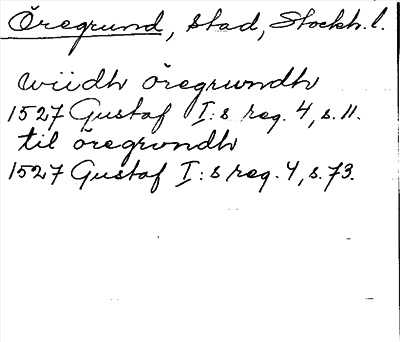 Öregrund, stad, Stockh. l.
wiidh öregrundh
1527 Gustaf I:s reg. 4, s. 11.
til öregrundh
1527 Gustaf I:s reg. 4, s. 73.